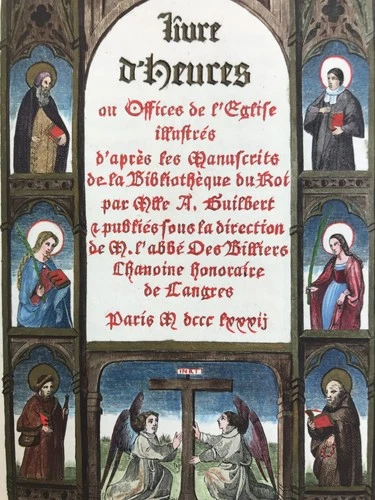 Livre
d'Heures
ou Offices de l'Eglise
illustrés
d'après les Manuscrits
de la Bibliothèque du Roi
par Mlle A. Guilbert
& publiés sous la direction
de M. l'abbé Des Billiers
Chanoine honoraire
de Langres
Paris M dccc lxxxij
INRI